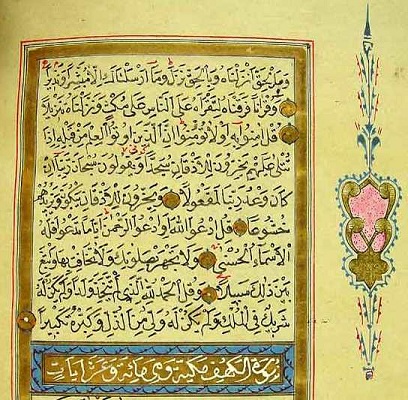 وَبِالْحَقِّ اَنْزَلْنَاهُ وَبِالْحَقِّ نَزَلَ وَمَا اَرْسَلْنَاكَ اِلَّا مُبَشِّرًا وَنَذِيرًا
وَقُرْاٰنًا فَرَقْنَاهُ لِتَقْرَاَهُ عَلَى النَّاسِ عَلٰى مُكْثٍ وَنَزَّلْنَاهُ تَنْزِيلًا
قُلْ اٰمِنُوا بِهِ اَوْ لَا تُؤْمِنُوا اِنَّ الَّذِينَ اُوتُوا الْعِلْمَ مِنْ قَبْلِهِ اِذَا
يُتْلٰى عَلَيْهِمْ يَخِرُّونَ لِلْاَذْقَانِ سُجَّدًا وَيَقُولُونَ سُبْحَانَ رَبِّنَا اِنْ
كَانَ وَعْدُ رَبِّنَا لَمَفْعُولًا وَيَخِرُّونَ لِلْاَذْقَانِ يَبْكُونَ وَيَزِيدُهُمْ
خُشُوعًا قُلِ ادْعُوا اللّٰهَ اَوِ ادْعُوا الرَّحْمٰنَ اَيًّا مَا تَدْعُوا فَلَهُ
الْاَسْمَاءُ الْحُسْنٰى وَلَا تَجْهَرْ بِصَلَوتِكَ وَلَا تُخَافِتْ بِهَا وَابْتَغِ
بَيْنَ ذٰلِكَ سَبِيلًا وَقُلِ الْحَمْدُ لِلّٰهِ الَّذِي لَمْ يَتَّخِذْ وَلَدًا وَلَمْ يَكُنْ لَهُ
شَرِيكٌ فِي الْمُلْكِ وَلَمْ يَكُنْ لَهُ وَلِيٌّ مِنَ الذُّلِّ وَكَبِّرْهُ تَكْبِيرًا
سورة الكهف مكية وهي مائة وعشر ايات